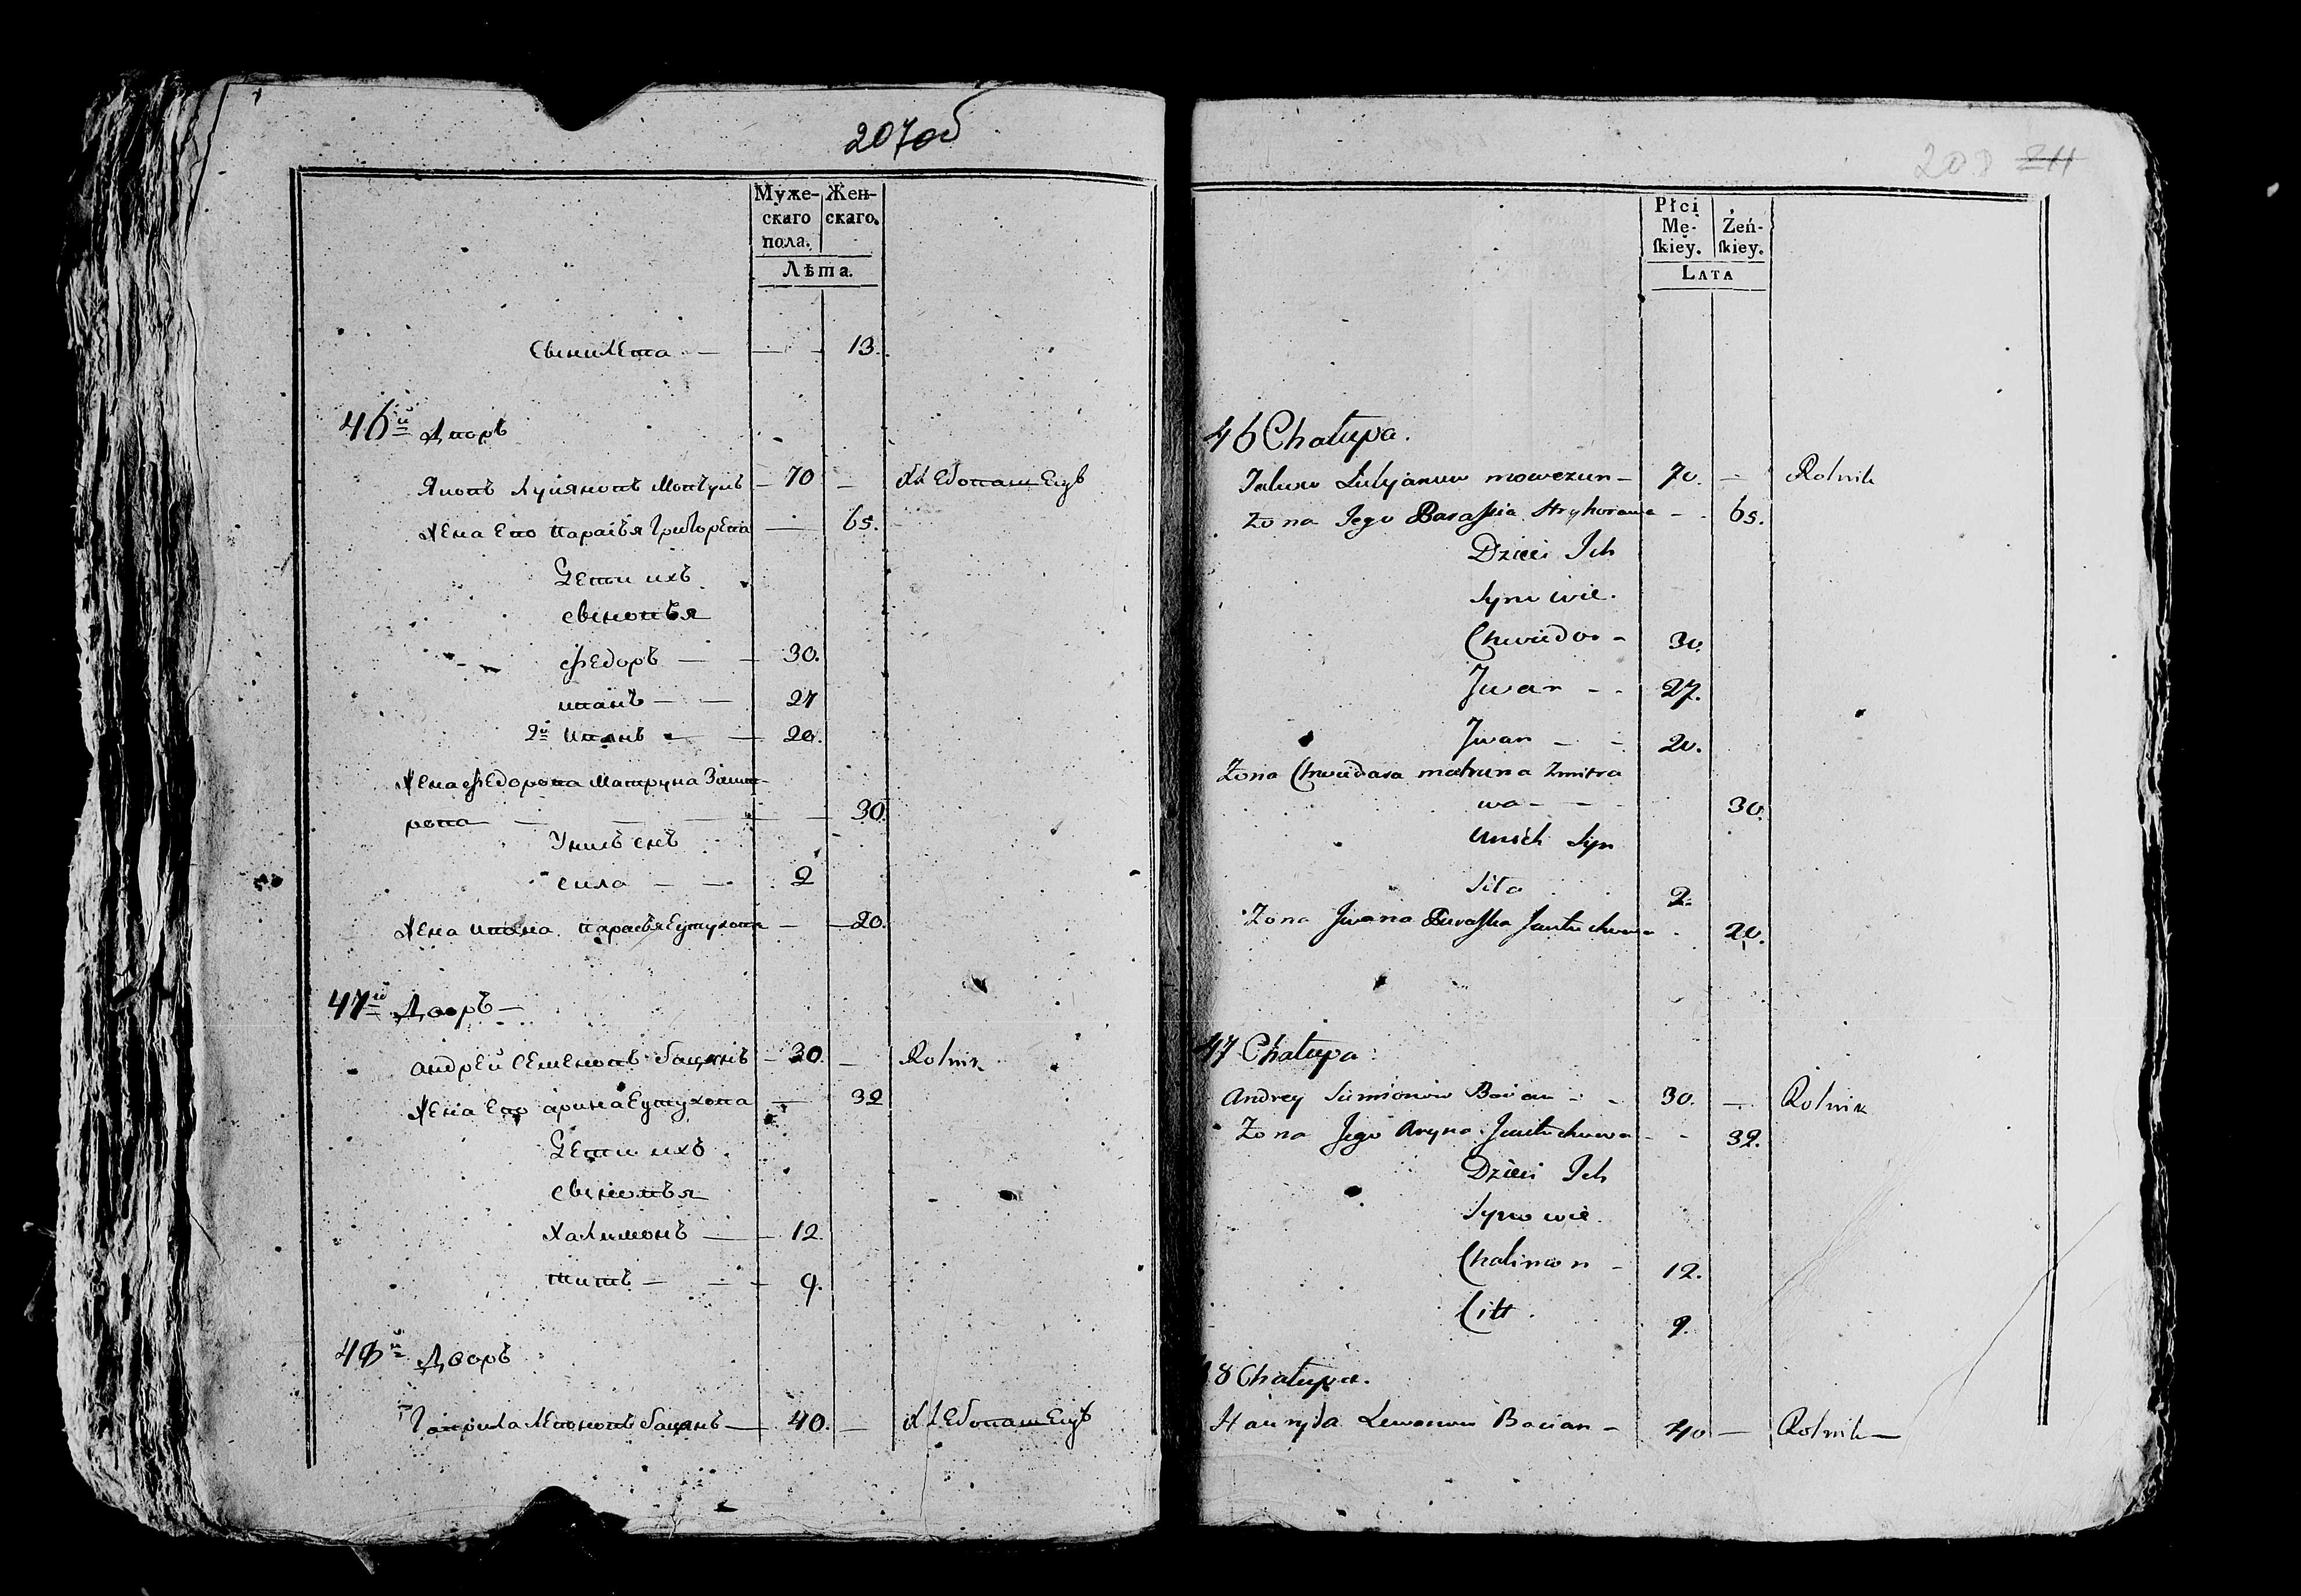 207об
Муже-
скаго
пола.
Жен-
скаго.
Лѣта.
13.
46й Дворъ
Яковъ Лукяновъ Мовчунъ — 70 — Хлебопашецъ
Жена Его Парасья Григорева — 65.
Дети ихъ
сыновья
Федоръ — — 30.
иванъ — — 27
2й иванъ — — 20.
Жена Федорова Матруна Зми-
рова — — 30.
Унихъ снъ
сила — — 2
Жена ивана Парасья Евтухова — 20.
47й Дворъ —
андрей Семеновъ бацянъ — 30. — Rolnik
Жена Его арина Евтухова — 32
Дети ихъ
сыновья
Халимонъ — 12
титъ — — 9.
48й Дворъ
Гаврила Левоновъ бацянъ — 40. — Хлебопашецъ
208 211
Płci
Mę-
ſkiey.
Żeń-
ſkiey.
LATA
46 Chałupa.
Jakow Łukjanow mowczun — 70. — Rolnik
Zona Jego Parassia Hryhorowa - - 65.
Dzieci Ich
Synowie.
Chwiedor - 30.
Jwan - - 27.
Jwan - - 20.
Zona Chwiedara matruna Zmitra
wa - - 30.
Unich Syn
Siła 2.
Zona Jwana Parasska Jawtuchowa 20.
47 Chałupa
Andrey Siemionow Bocian - - 30. — Rolnik
Zona Jego Aryna Jawtuchowa - - 32.
Dzieci Ich
Synowie.
Chalimon - 12.
Citt. 9.
48 Chałupa.
Hauryła Lewonow Bocian - 40 — Rolnik —